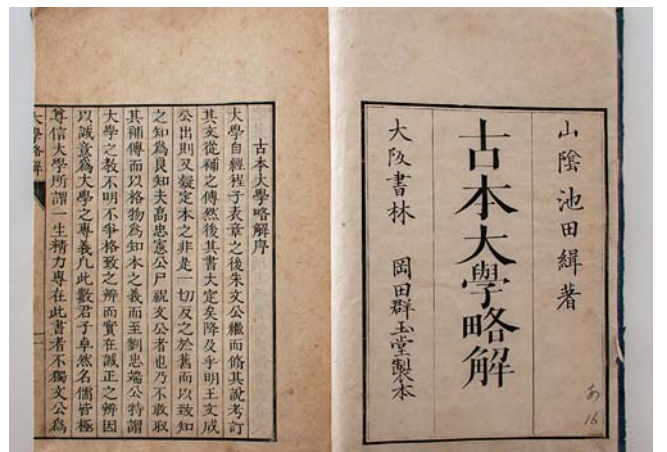 山陰 池田緝著
古本大學略解
大阪書林 岡田群玉堂製本
あ
16
古本大學略解序
大學自經程子表章之後朱文公繼而脩其說考訂
其文從補之傳然後其書大定矣降及乎明王文成
公出則又疑定本之非是一切反之於舊而以致知
之知爲良知夫高忠憲公尸祝文公者也乃不敢取
其補傳而以格物爲知本之義而至劉忠端公特謂
大學之教不明不爭格致之辨而實在誠正之辨因
以誠意爲大學之專義凡此數君子卓然名儒皆極
尊信大學所謂一生精力專在此書者不獨文公爲
大學略解